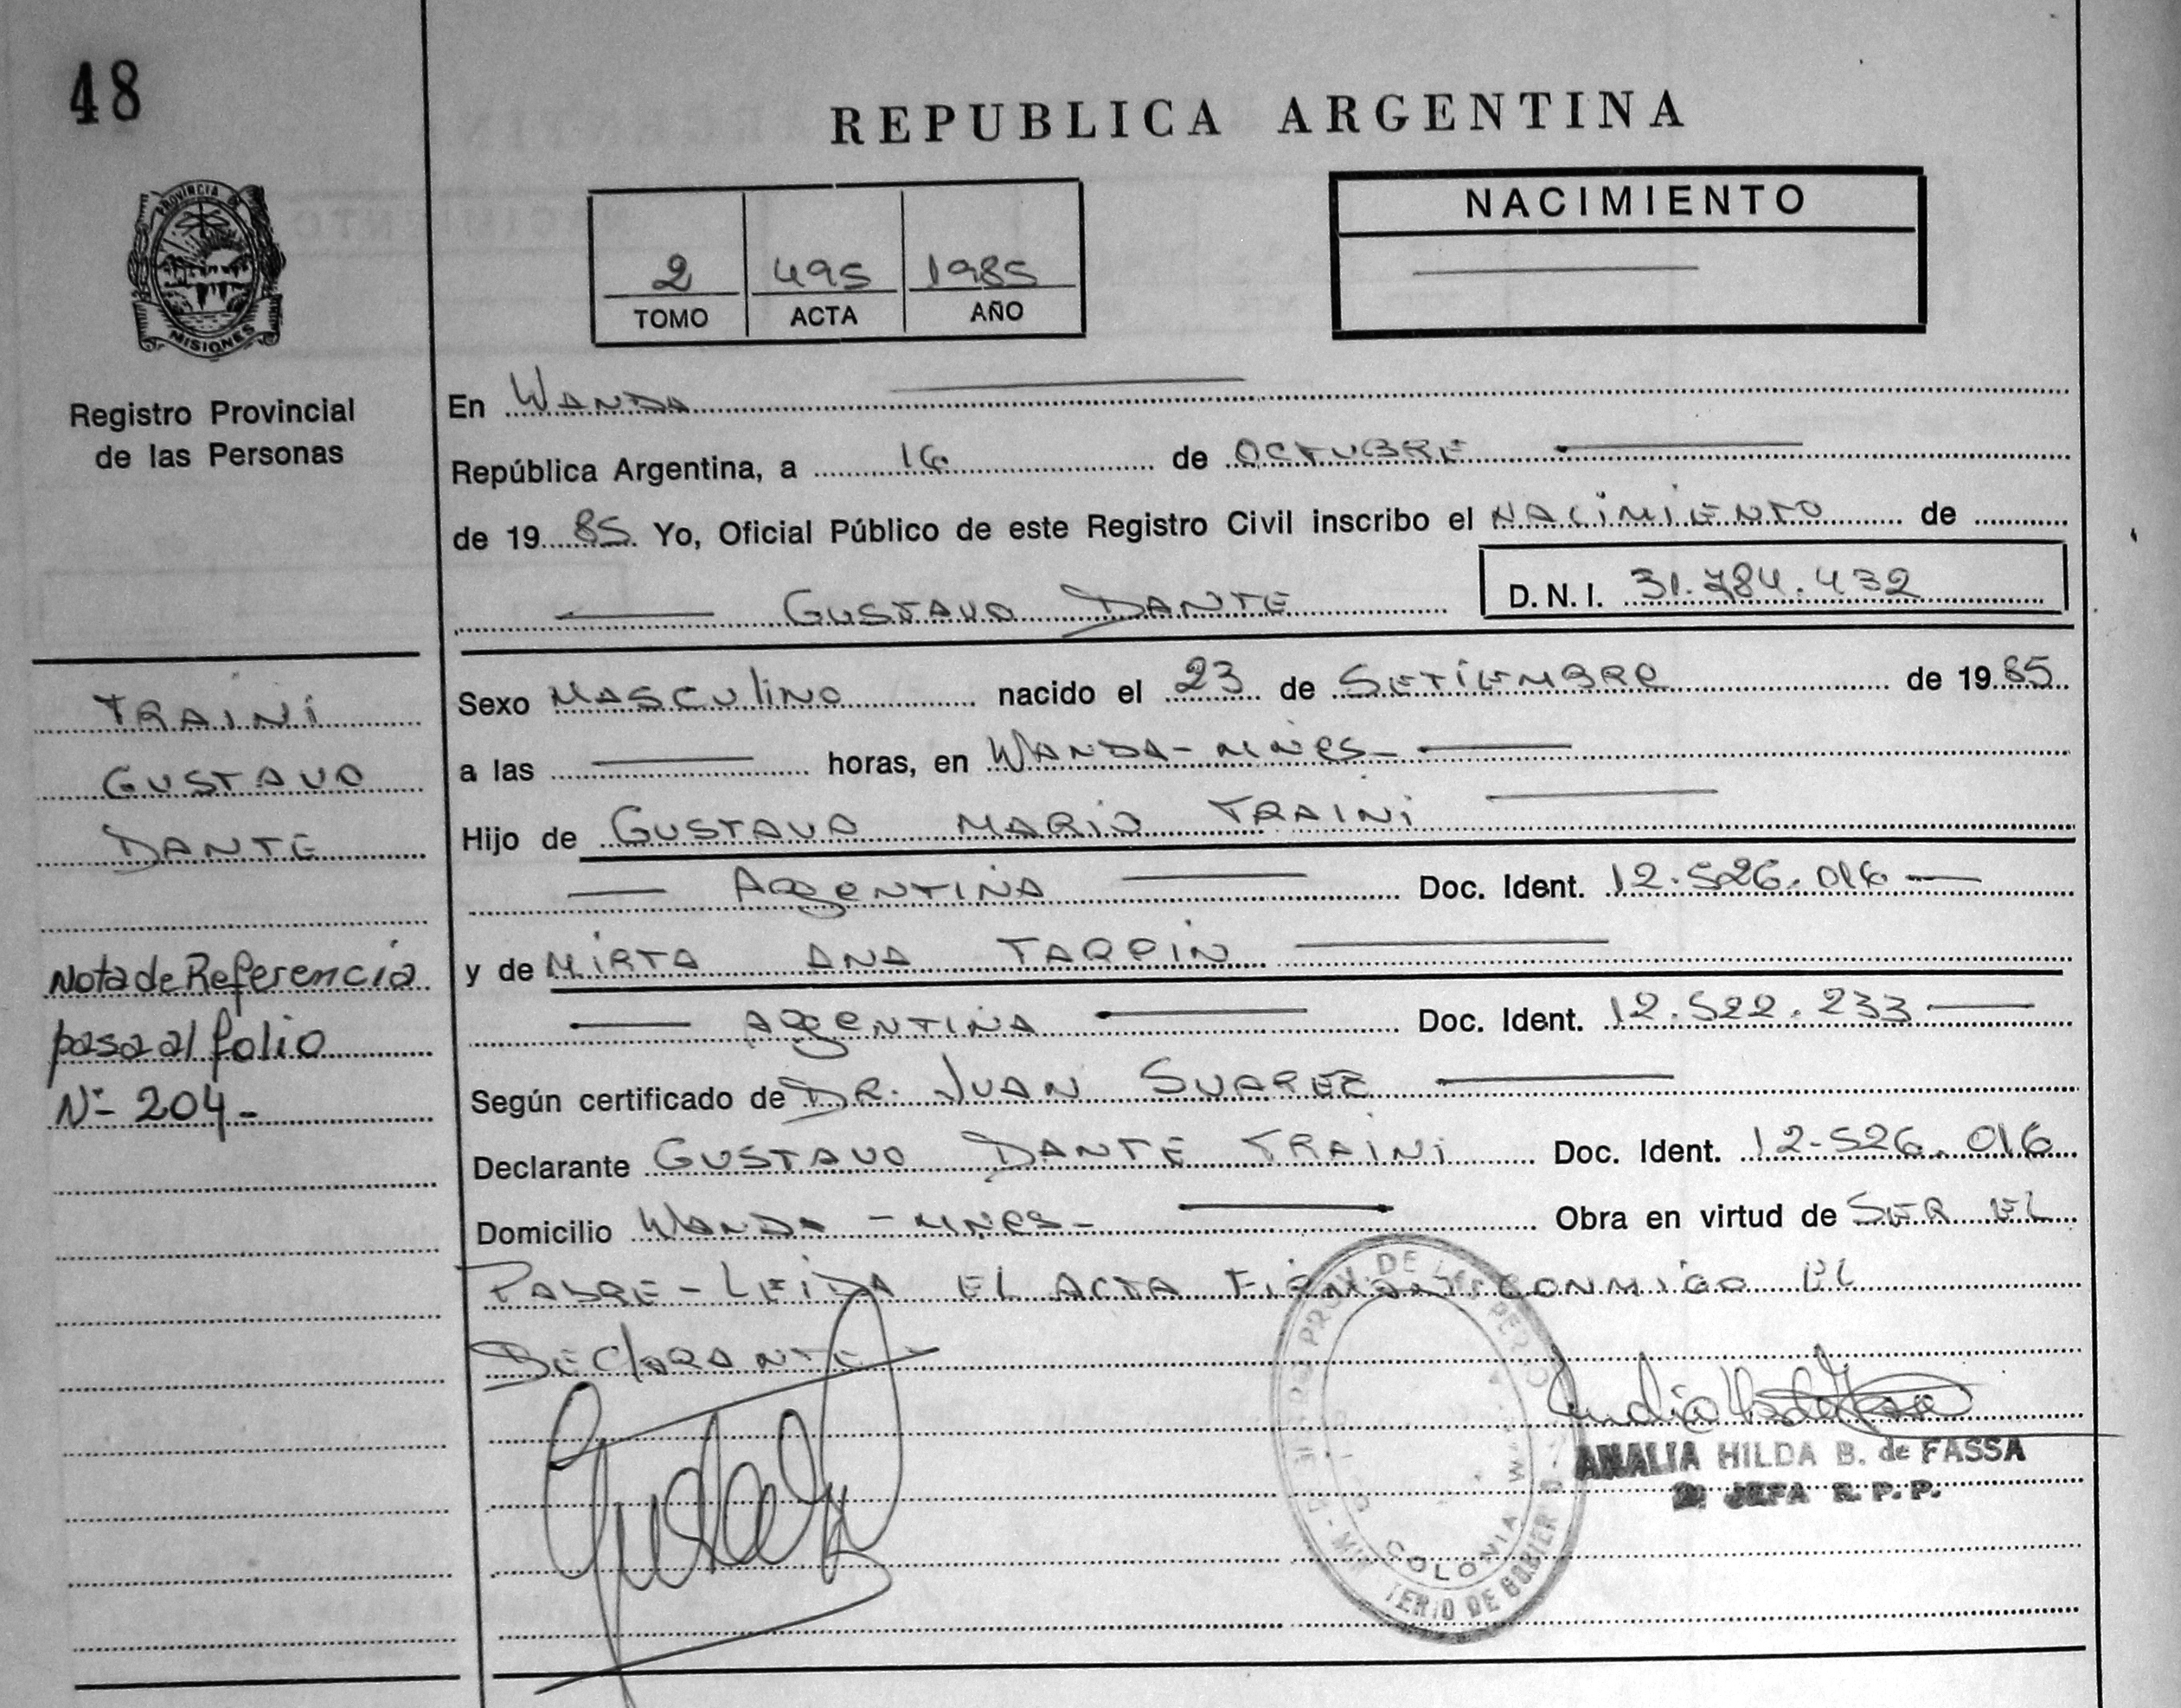 48
REPUBLICA ARGENTINA
PROVINCIA DE
MISIONES
Registro Provincial
de las Personas
2 495 1985
TOMO ACTA AÑO
NACIMIENTO
En WANDA
República Argentina, a 16 de OCTUBRE
de 1985 Yo, Oficial Público de este Registro Civil inscribo el NACIMIENTO de
GUSTAVO DANTE D.N.I. 31.784.432
TRAINI
GUSTAVO
DANTE
Nota de Referencia
pasa al folio
N°- 204-
Sexo MASCULINO nacido el 23 de SETIEMBRE de 1985
a las horas, en WANDA-MNES-
Hijo de GUSTAVO MARIO TRAINI
ARGENTINA Doc. Ident. 12.526.016
y de MIRTA ANA TARPIN
ARGENTINA Doc. Ident. 12.522.233
Según certificado de DR. JUAN SUAREZ
Declarante GUSTAVO DANTE TRAINI Doc. Ident. 12-526.016
Domicilio WANDA - MNES- Obra en virtud de SER EL
PADRE - LEIDA EL ACTA FIRMA CONMIGO EL
DECLARANTE
PROV. DE LAS PERSO
COLONIA
TERIO DE GOBIER
ANALIA HILDA B. de FASSA
JEFA R.P.P.